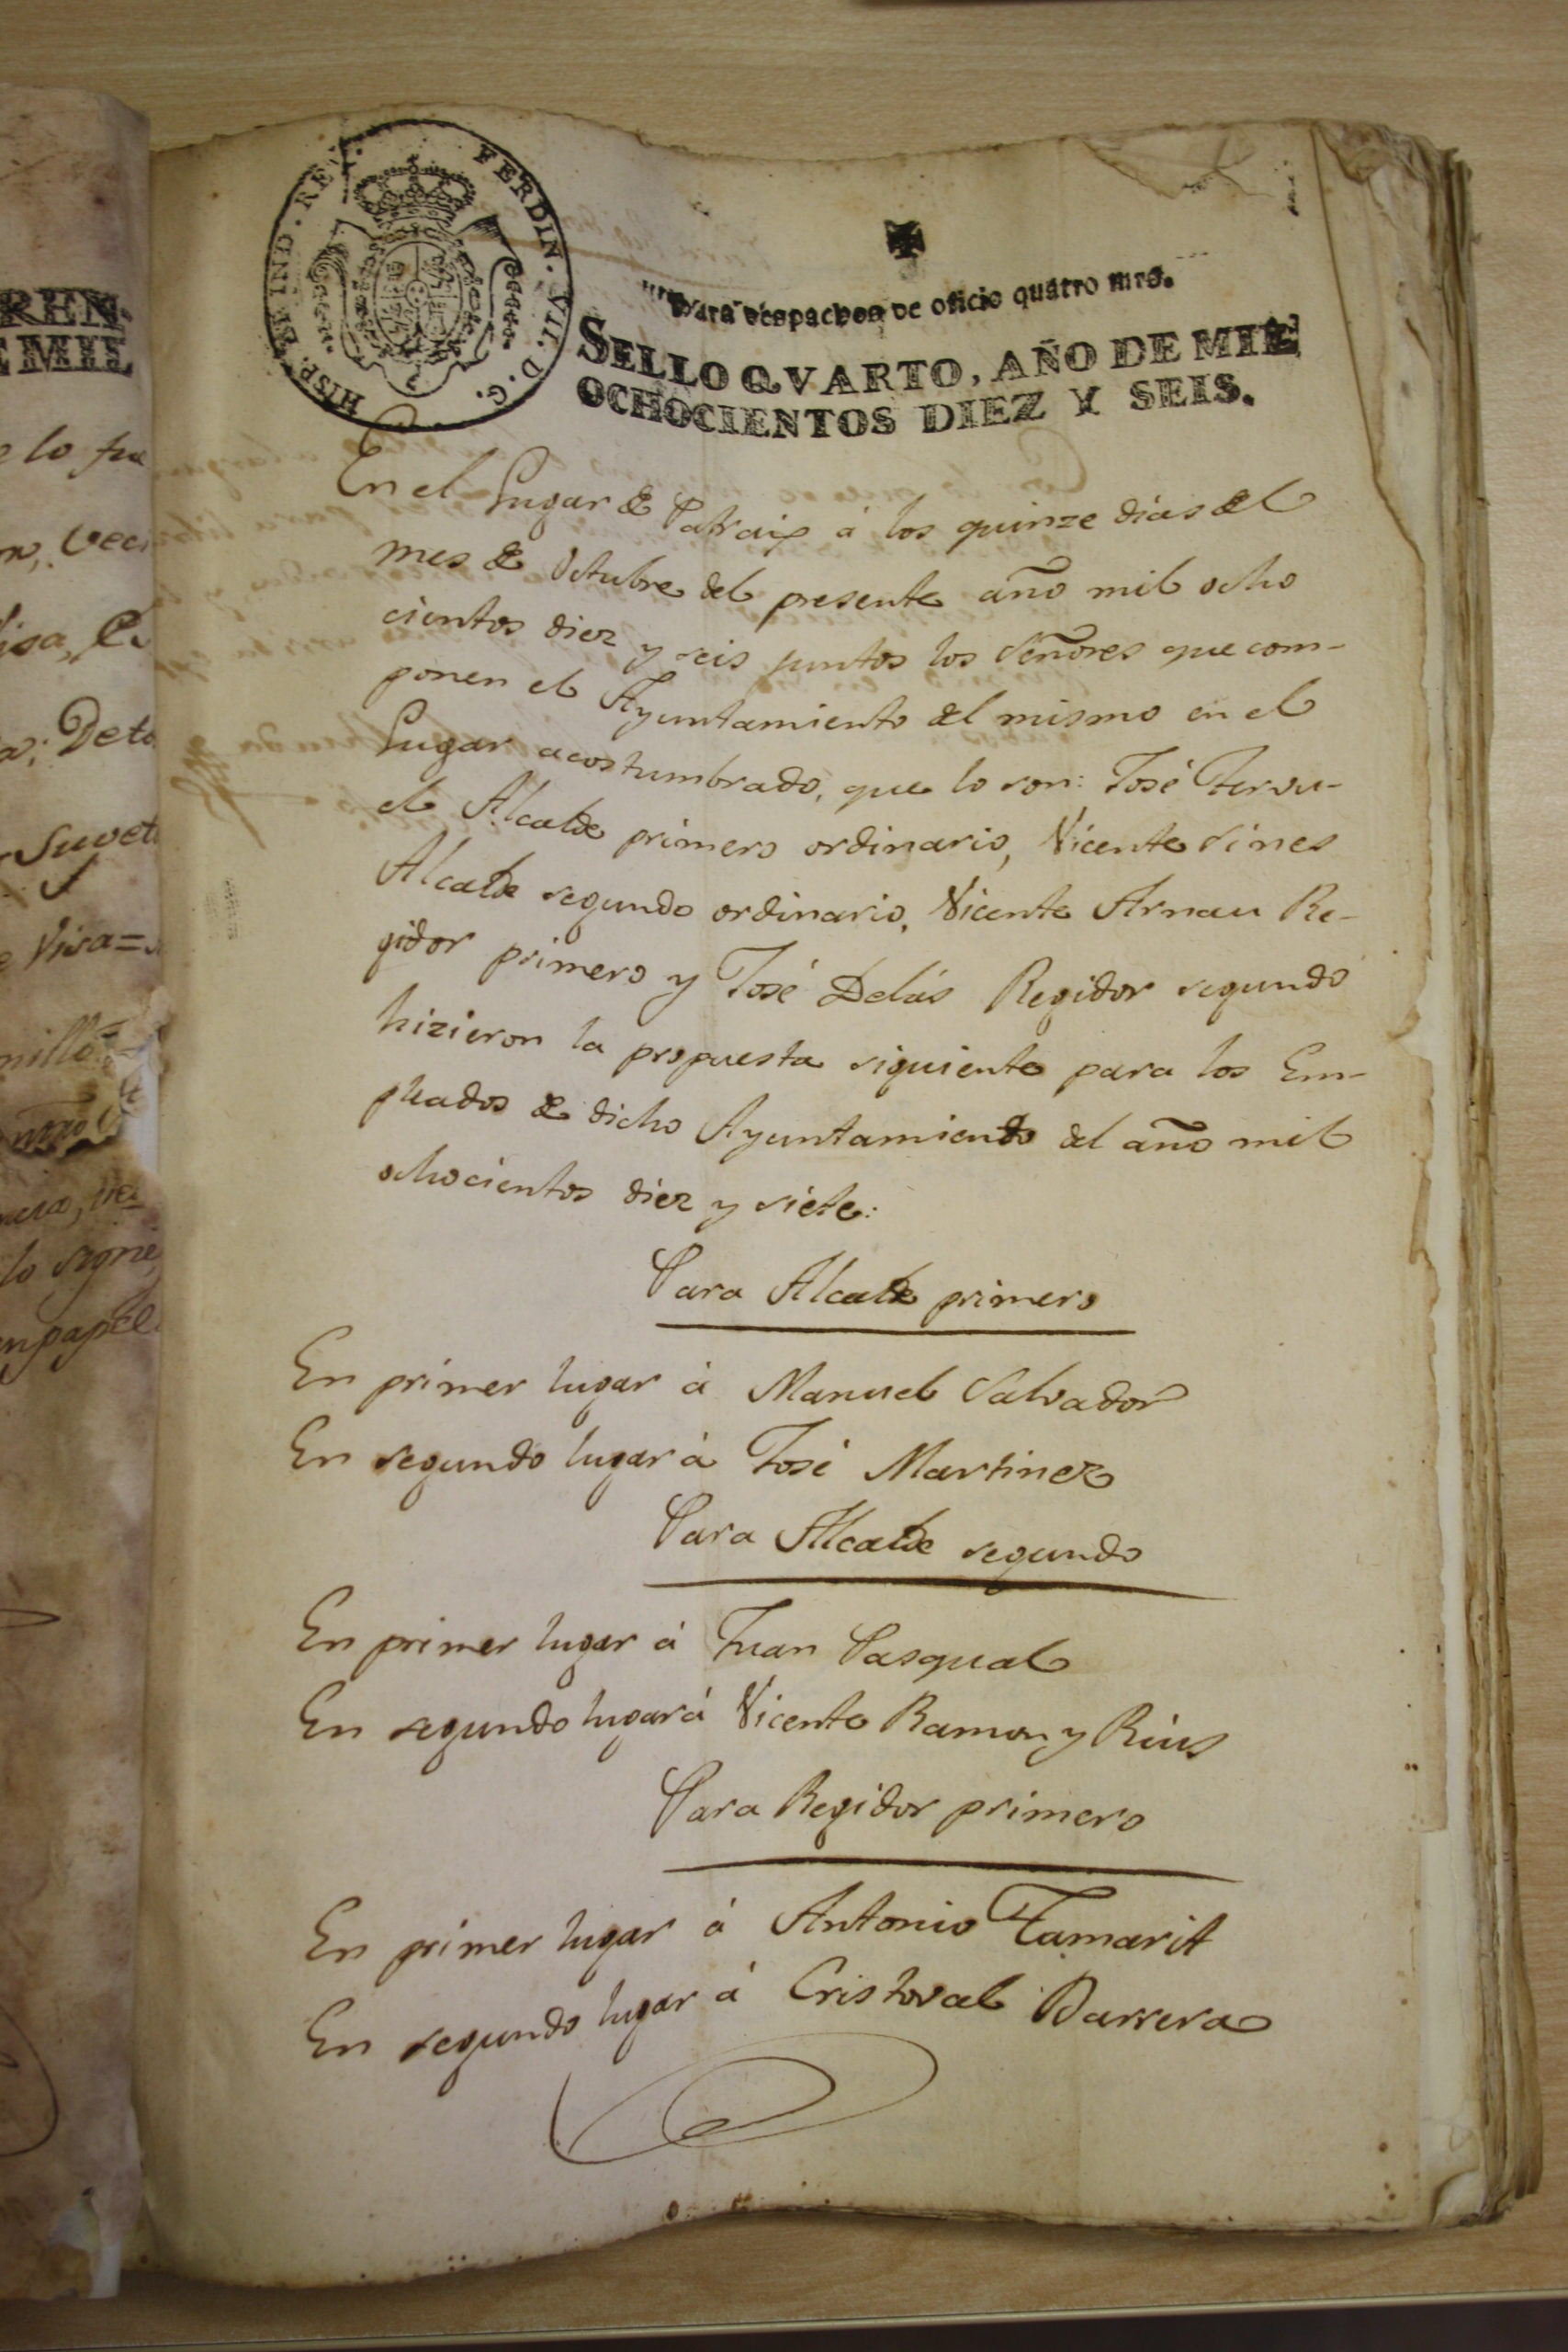 HISP. ET IND. REX. FERDIN. VII. D. G.
Para despachos de oficio quatro mrs.
SELLO QVARTO, AÑO DE MIL
OCHOCIENTOS DIEZ Y SEIS.
En el Lugar de Patraix á los quinze dias del
mes de Octubre del presente año mil ocho
cientos diez y seis juntos los Señores que com-
ponen el Ayuntamiento del mismo en el
Lugar acostumbrado, que lo son: José
el Alcalde primero ordinario, Vicente Sines
Alcalde segundo ordinario, Vicente Arnau Re-
gidor primero y José Delás Regidor segundo
hizieron la propuesta siguiente para los Em-
pleados de dicho Ayuntamiento del año mil
ochocientos diez y siete:
Para Alcalde primero
En primer lugar á Manuel Salvador
En segundo lugar á José Martinez
Para Alcalde segundo
En primer lugar á Juan Pasqual
En segundo lugar á Vicente Ramon y Rius
Para Regidor primero
En primer lugar á Antonio Tamarit
En segundo lugar á Cristoval Barrera
REN-
E MIL
lo fue
Deto
Suget
Visa=
nillo
lo signé,
en papel